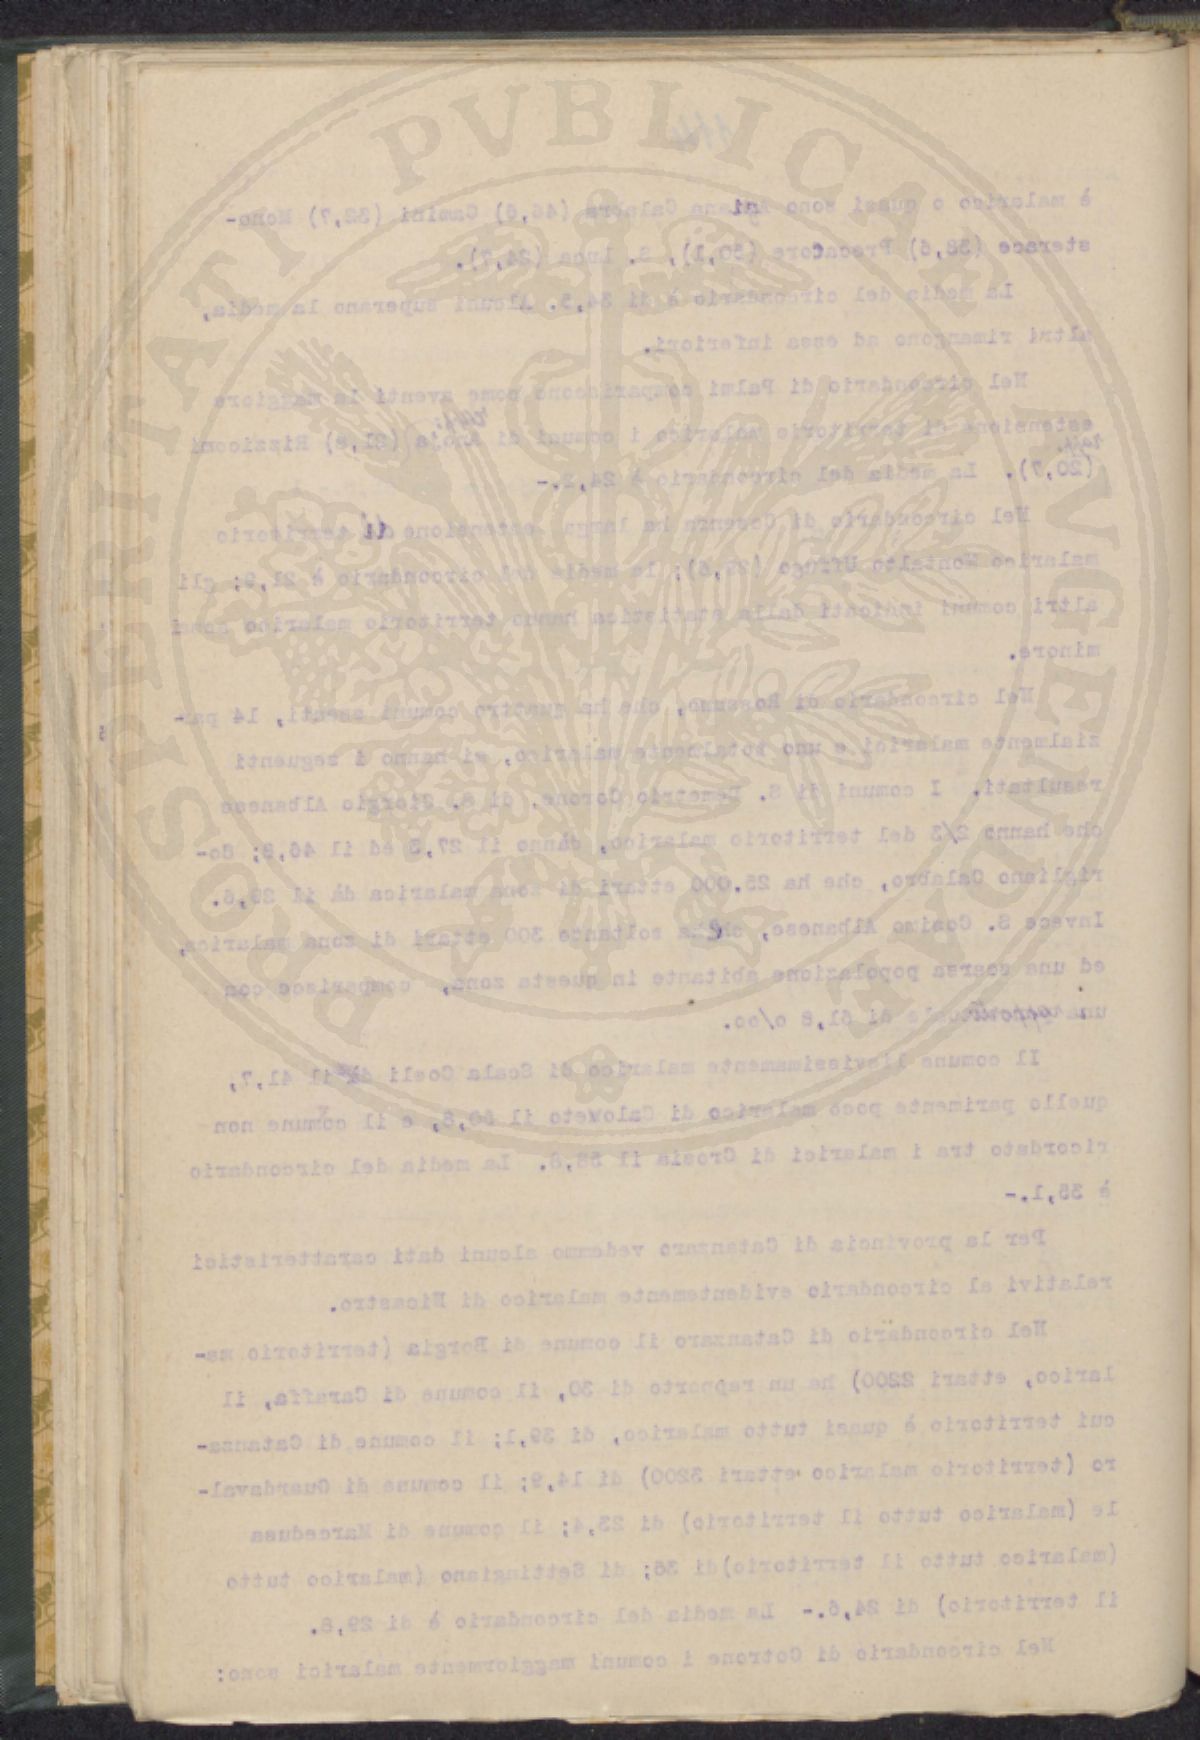 PROSPERITATI PVBLICAE AVGENDAE
114
è malarico o quasi sono Calabra (46,6) Camini (32,7) Mono-
sterace (38,6) Precacore (50,1), S. Luca (24,7).
La media del circondario è di 34,5. Alcuni superano la media,
altri rimangono ad essa inferiori.
Nel circondario di Palmi compariscono come aventi la maggiore
estensione di territorio malarico i comuni di Anoja (21,8) Rizziconi
(20,7). La media del circondario è 24,2.-
Nel circondario di Cosenza ha larga estensione di territorio
malarico Montalto Uffugo; la media del circondario è 21,9; gli
altri comuni indicati dalla statistica hanno territorio malarico assai
minore.
Nel circondario di Rossano, che ha quattro comuni esenti, 14 par-
zialmente malarici e uno totalmente malarico, si hanno i seguenti
resultati. I comuni di S. Demetrio Corone, di S. Giorgio Albanese
che hanno 2/3 del territorio malarico, dànno il 27,3 ed il 46,8; Co-
rigliano Calabro, che ha 25.000 ettari di zona malarica dà il 39,6.
Invece S. Cosimo Albanese, che ha soltanto 300 ettari di zona malarica,
ed una scarsa popolazione abitante in questa zona, comparisce con
un di 61,8 o/oo.
Il comune lievissimamente malarico di Scala Coeli dà il 41,7,
quello parimente poco malarico di Caloveto il 50,8, e il comune non
ricordato tra i malarici di Crosia il 58,8. La media del circondario
è 35,1.-
Per la provincia di Catanzaro vedemmo alcuni dati caratteristici
relativi al circondario evidentemente malarico di Nicastro.
Nel circondario di Catanzaro il comune di Borgia (territorio ma-
larico, ettari 2200) ha un rapporto di 30, il comune di Caraffa, il
cui territorio è quasi tutto malarico, di 39,1; il comune di Catanza-
ro (territorio malarico ettari 3200) di 14,9; il comune di Guardaval-
le (malarico tutto il territorio) di 23,4; il comune di Marcedusa
(malarico tutto il territorio)di 36; di Settingiano (malarico tutto
il territorio) di 24,6.- La media del circondario è di 29,8.
Nel circondario di Cotrone i comuni maggiormente malarici sono: